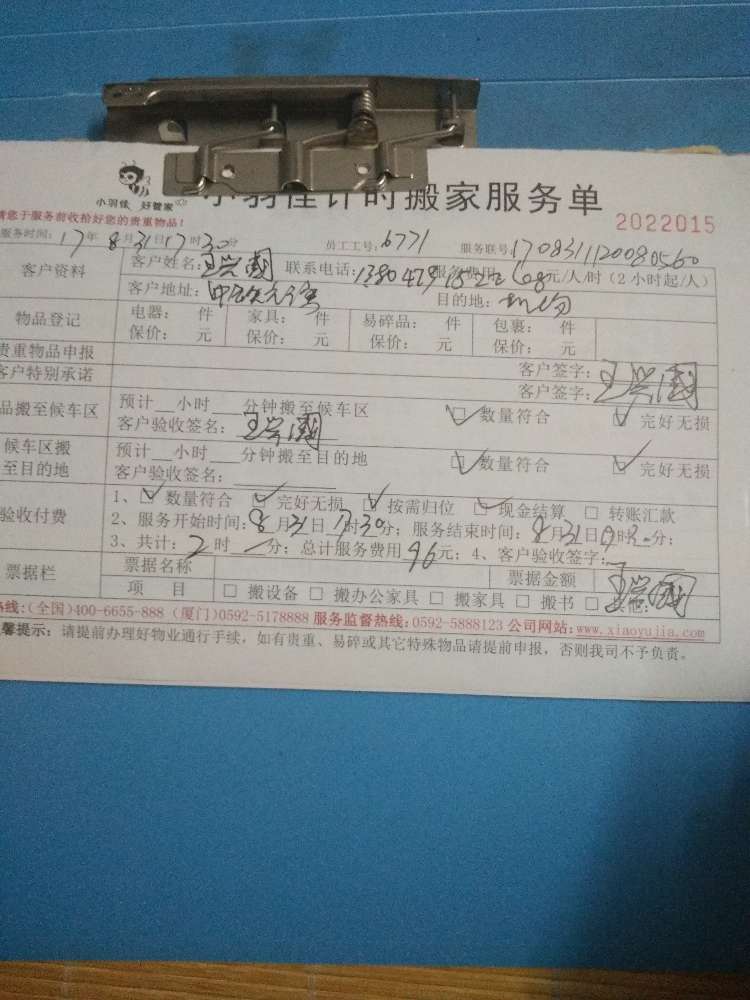 小羽佳 好管家
小羽佳计时搬家服务单
请您于服务前收拾好您的贵重物品!
2022015
服务时间: 17年 8月31日17时30分 员工工号: 6771 服务联号
客户资料 客户姓名: 王兴国 联系电话: 服务费用: 元/人/时 (2小时起/人)
客户地址: 目的地:
物品登记 电器: 件 家具: 件 易碎品: 件 包裹: 件
保价: 元 保价: 元 保价: 元 保价: 元
贵重物品申报 客户签字:
客户特别承诺 客户签字: 王兴国
品搬至候车区 预计__小时__分钟搬至候车区 ☑数量符合 ☑完好无损
客户验收签名: 王兴国
候车区搬至目的地 预计__小时__分钟搬至目的地 ☑数量符合 ☑完好无损
客户验收签名:
验收付费 1、☑数量符合 ☑完好无损 ☑按需归位 ☑现金结算 □转账汇款
2、服务开始时间: 8月31日17时30分; 服务结束时间: 8月31日 时 分;
3、共计: 2时 分; 总计服务费用 96元; 4、客户验收签字: 王兴国
票据栏 票据名称 票据金额
项 目 □搬设备 □搬办公家具 □搬家具 □搬书 □其他:
热线:(全国)400-6655-888 (厦门)0592-5178888 服务监督热线:0592-5888123 公司网站:www.xiaoyujia.com
馨提示: 请提前办理好物业通行手续, 如有贵重、易碎或其它特殊物品请提前申报, 否则我司不予负责。